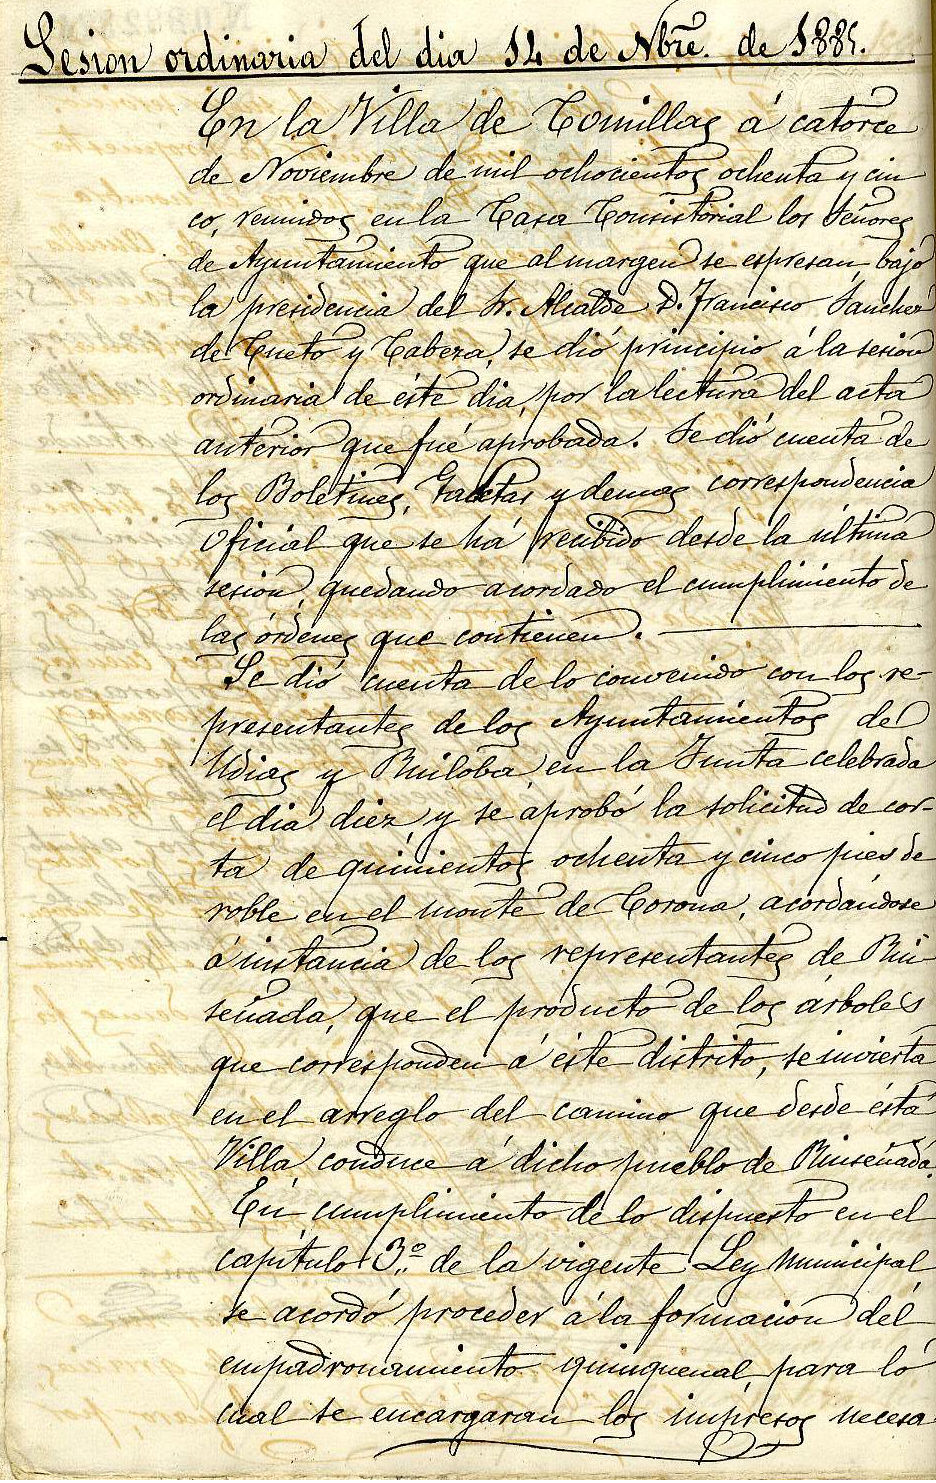 Sesion ordinaria del dia 14 de Nbre. de 1885.
En la Villa de Comillas á catorce
de Noviembre de mil ochocientos ochenta y cin
co, reunidos en la Casa Consistorial los Señores
de Ayuntamiento que al margen se espresan, bajo
la presidencia del Sr. Alcalde D. Francisco Sanchez
de Cueto y Cabeza, se dió principio á la sesion
ordinaria de éste dia, por la lectura del acta
anterior que fué aprobada. Se dió cuenta de
los Boletines, Gacetas y demas correspondencia
Oficial que se há recibido desde la última
sesion, quedando acordado el cumplimiento de
las órdenes que contienen.
Se dió cuenta de lo convenido con los re-
presentantes de los Ayuntamientos de
Udias y Ruiloba en la Junta celebrada
el dia diez, y se aprobó la solicitud de cor-
ta de quinientos ochenta y cinco pies de
roble en el monte de Corona, acordándose
á instancia de los representantes de Rui-
señada, que el producto de los árboles
que corresponden á éste distrito, se invierta
en el arreglo del camino que desde ésta
Villa conduce á dicho pueblo de Ruiseñada.
En cumplimiento de lo dispuesto en el
capítulo 3.º de la vigente Ley Municipal
se acordó proceder á la formacion del
empadronamiento quinquenal, para lo
cual se encargaran los impresos necesa